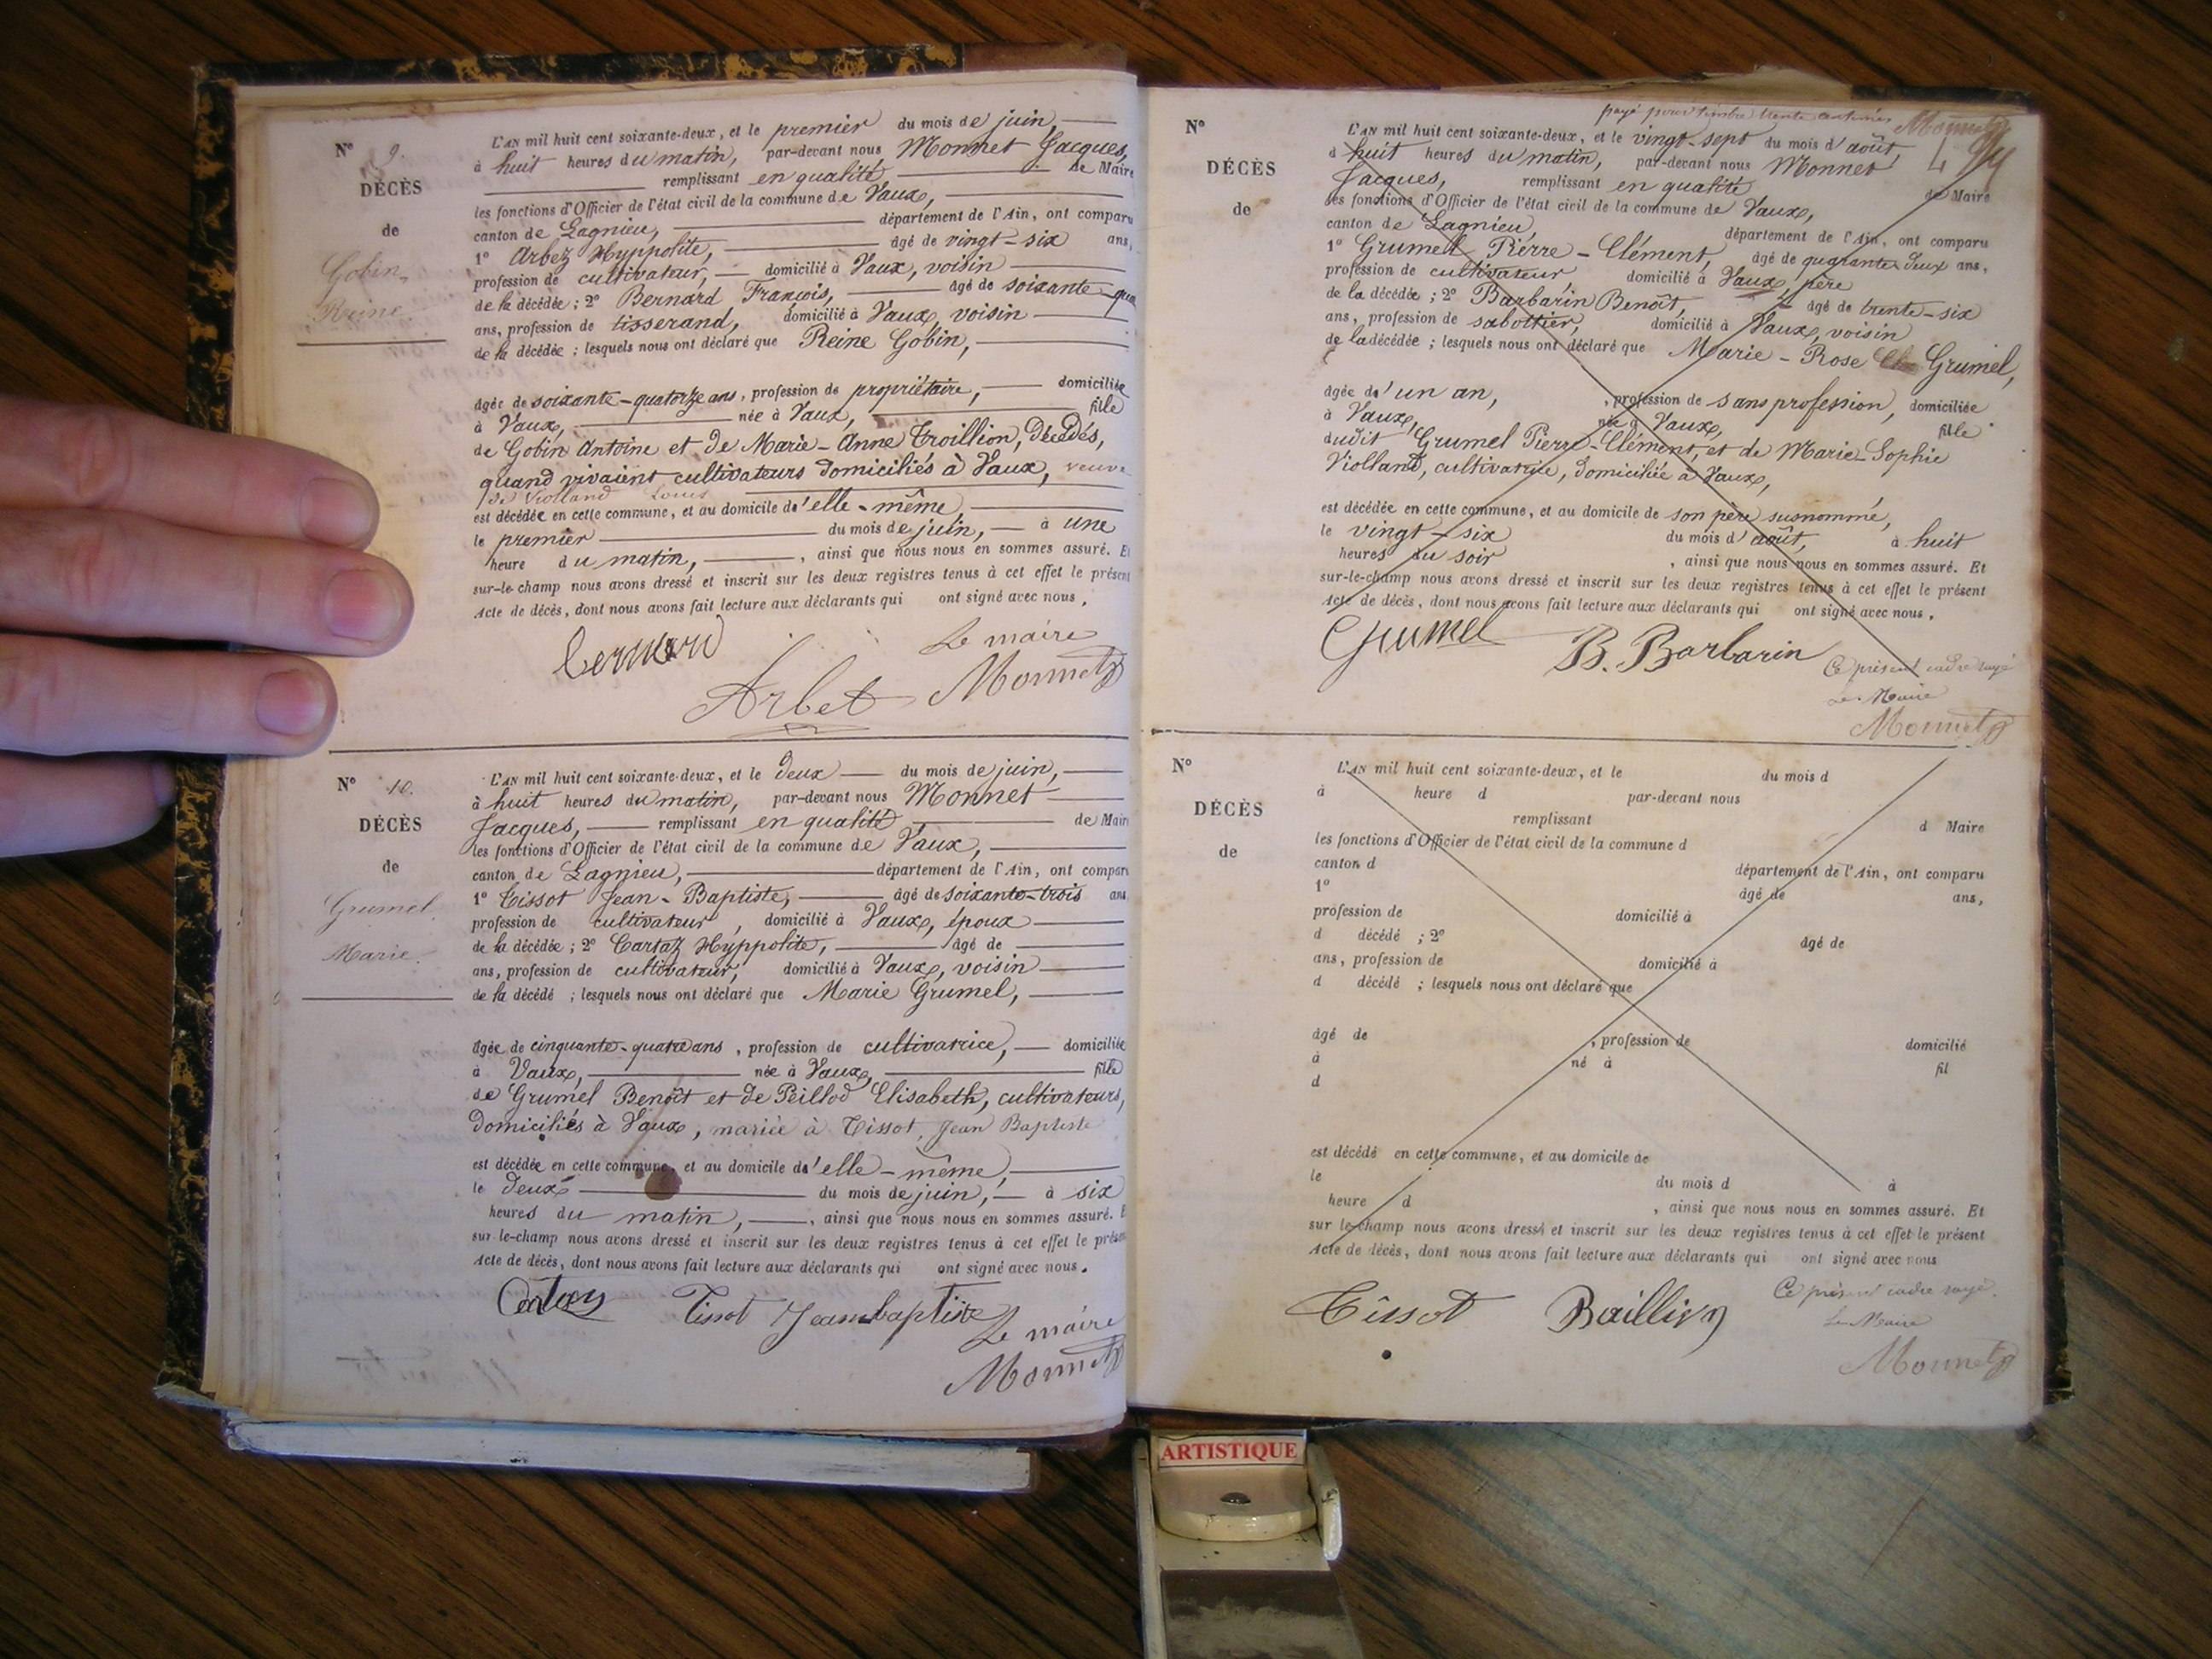 N° 9.
DÉCÈS
de
Gobin
Reine.
L'AN mil huit cent soixante-deux, et le premier du mois de juin,
à huit heures du matin, par-devant nous Monnet Jacques,
remplissant en qualité de Maire
les fonctions d'Officier de l'état civil de la commune de Vaux,
canton de Lagnieu, département de l'Ain, ont comparu
1° Arbez Hyppolite, âgé de vingt-six ans,
profession de cultivateur, domicilié à Vaux, voisin
de la décédée ; 2° Bernard François, âgé de soixante-qua
ans, profession de tisserand, domicilié à Vaux, voisin
de la décédée ; lesquels nous ont déclaré que Reine Gobin,
âgée de soixante-quatorze ans, profession de propriétaire, domiciliée
à Vaux, née à Vaux, fille
de Gobin Antoine et de Marie-Anne Troillion, décédés,
quand vivaient cultivateurs domiciliés à Vaux, veuve
de Violland Louis
est décédée en cette commune, et au domicile d'elle-même,
le premier du mois de juin, à une
heure du matin, , ainsi que nous nous en sommes assuré. Et
sur-le-champ nous avons dressé et inscrit sur les deux registres tenus à cet effet le présent
Acte de décès, dont nous avons fait lecture aux déclarants qui ont signé avec nous.
Bernard
Arbet
Le maire
Monnet
N° 10.
DÉCÈS
de
Grumel
Marie.
L'AN mil huit cent soixante-deux, et le deux du mois de juin,
à huit heures du matin, par-devant nous Monnet
Jacques, remplissant en qualité de Mair
les fonctions d'Officier de l'état civil de la commune de Vaux,
canton de Lagnieu, département de l'Ain, ont compar
1° Tissot Jean-Baptiste, âgé de soixante-trois ans
profession de cultivateur, domicilié à Vaux, époux
de la décédée ; 2° Cartaz Hyppolite, âgé de
ans, profession de cultivateur, domicilié à Vaux, voisin
de la décédé ; lesquels nous ont déclaré que Marie Grumel,
âgée de cinquante-quatre ans, profession de cultivatrice, domiciliée
à Vaux, née à Vaux, fille
de Grumel Benoît et de Peillod Elisabeth, cultivateurs,
domiciliés à Vaux, mariée à Tissot, Jean Baptiste
est décédée en cette commune, et au domicile d'elle-même,
le deux du mois de juin, à six
heures du matin, , ainsi que nous nous en sommes assuré. E
sur-le-champ nous avons dressé et inscrit sur les deux registres tenus à cet effet le prése
Acte de décès, dont nous avons fait lecture aux déclarants qui ont signé avec nous.
Tissot Jean baptiste
Le maire
Monnet
payé pour timbre trente centimes Monnet
N°
DÉCÈS
de
L'AN mil huit cent soixante-deux, et le vingt-sept du mois d'août
à huit heures du matin, par-devant nous Monnet
Jacques, remplissant en qualité de Maire
les fonctions d'Officier de l'état civil de la commune de Vaux,
canton de Lagnieu, département de l'Ain, ont comparu
1° Grumell Pierre-Clément, âgé de quarante-deux ans,
profession de cultivateur domicilié à Vaux, père
de la décédée ; 2° Barbarin Benoît, âgé de trente-six
ans, profession de sabottier, domicilié à Vaux, voisin
de la décédée ; lesquels nous ont déclaré que Marie-Rose Grumel,
âgée d'un an, , profession de sans profession, domiciliée
à Vaux, née à Vaux, fille
dudit Grumel Pierre-Clément, et de Marie-Sophie
Violland, cultivatrice, domiciliée à Vaux,
est décédée en cette commune, et au domicile de son père susnommé,
le vingt-six du mois d'août, à huit
heures du soir , ainsi que nous nous en sommes assuré. Et
sur-le-champ nous avons dressé et inscrit sur les deux registres tenus à cet effet le présent
Acte de décès, dont nous avons fait lecture aux déclarants qui ont signé avec nous.
Grumel
B. Barbarin
Ce présent cadre rayé
Le Maire
Monnet
N°
DÉCÈS
de
L'AN mil huit cent soixante-deux, et le du mois d
à heure d par-devant nous
remplissant d Maire
les fonctions d'Officier de l'état civil de la commune d
canton d département de l'Ain, ont comparu
1° âgé de ans,
profession de domicilié à
d décédé ; 2° âgé de
ans, profession de domicilié à
d décédé ; lesquels nous ont déclaré que
âgé de , profession de domicilié
à né à fil
d
est décédé en cette commune, et au domicile de
le du mois d à
heure d , ainsi que nous nous en sommes assuré. Et
sur le-champ nous avons dressé et inscrit sur les deux registres tenus à cet effet le présent
Acte de décès, dont nous avons fait lecture aux déclarants qui ont signé avec nous
Tissot
Baillivy
Ce présent cadre rayé.
Le Maire
Monnet
ARTISTIQUE